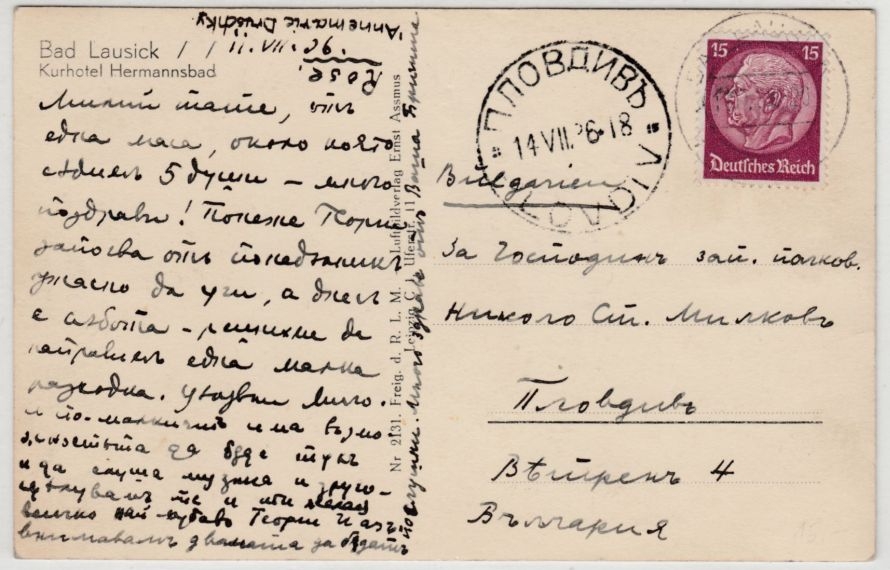 Annemarie Druschky
11.VII.36.
Rose,
Bad Lausick
Kurhotel Hermannsbad
Милий тате, отъ
една маса, около която
седимъ 5 души – много
поздрави! Понеже Георги
започва отъ понеделникъ
ужасно да учи, а днесъ
е събота – решихме да
направимъ една малка
разходка.
и по-малкитѣ има възмо
жностьта да бѫде тукъ
и да слуша музика и друго –
целувамъ те и
всичко най хубаво Георги И азъ
внимавамъ двамата да бѫдатъ
послушни. Много здраве отъ Ваша
Nr 2131. Freig. d. R. L. M. Luftbildverlag Ernst Assmus
Leipzig C 1, Uferstr. 11
15 15
Deutsches Reich
ПЛОВДИВЪ
14 VII.36-18
PLOVDIV
Bulgarien
За Господинъ зап. полков.
Николо Ст. Милковъ
Пловдивъ
Вѣтренъ 4
България